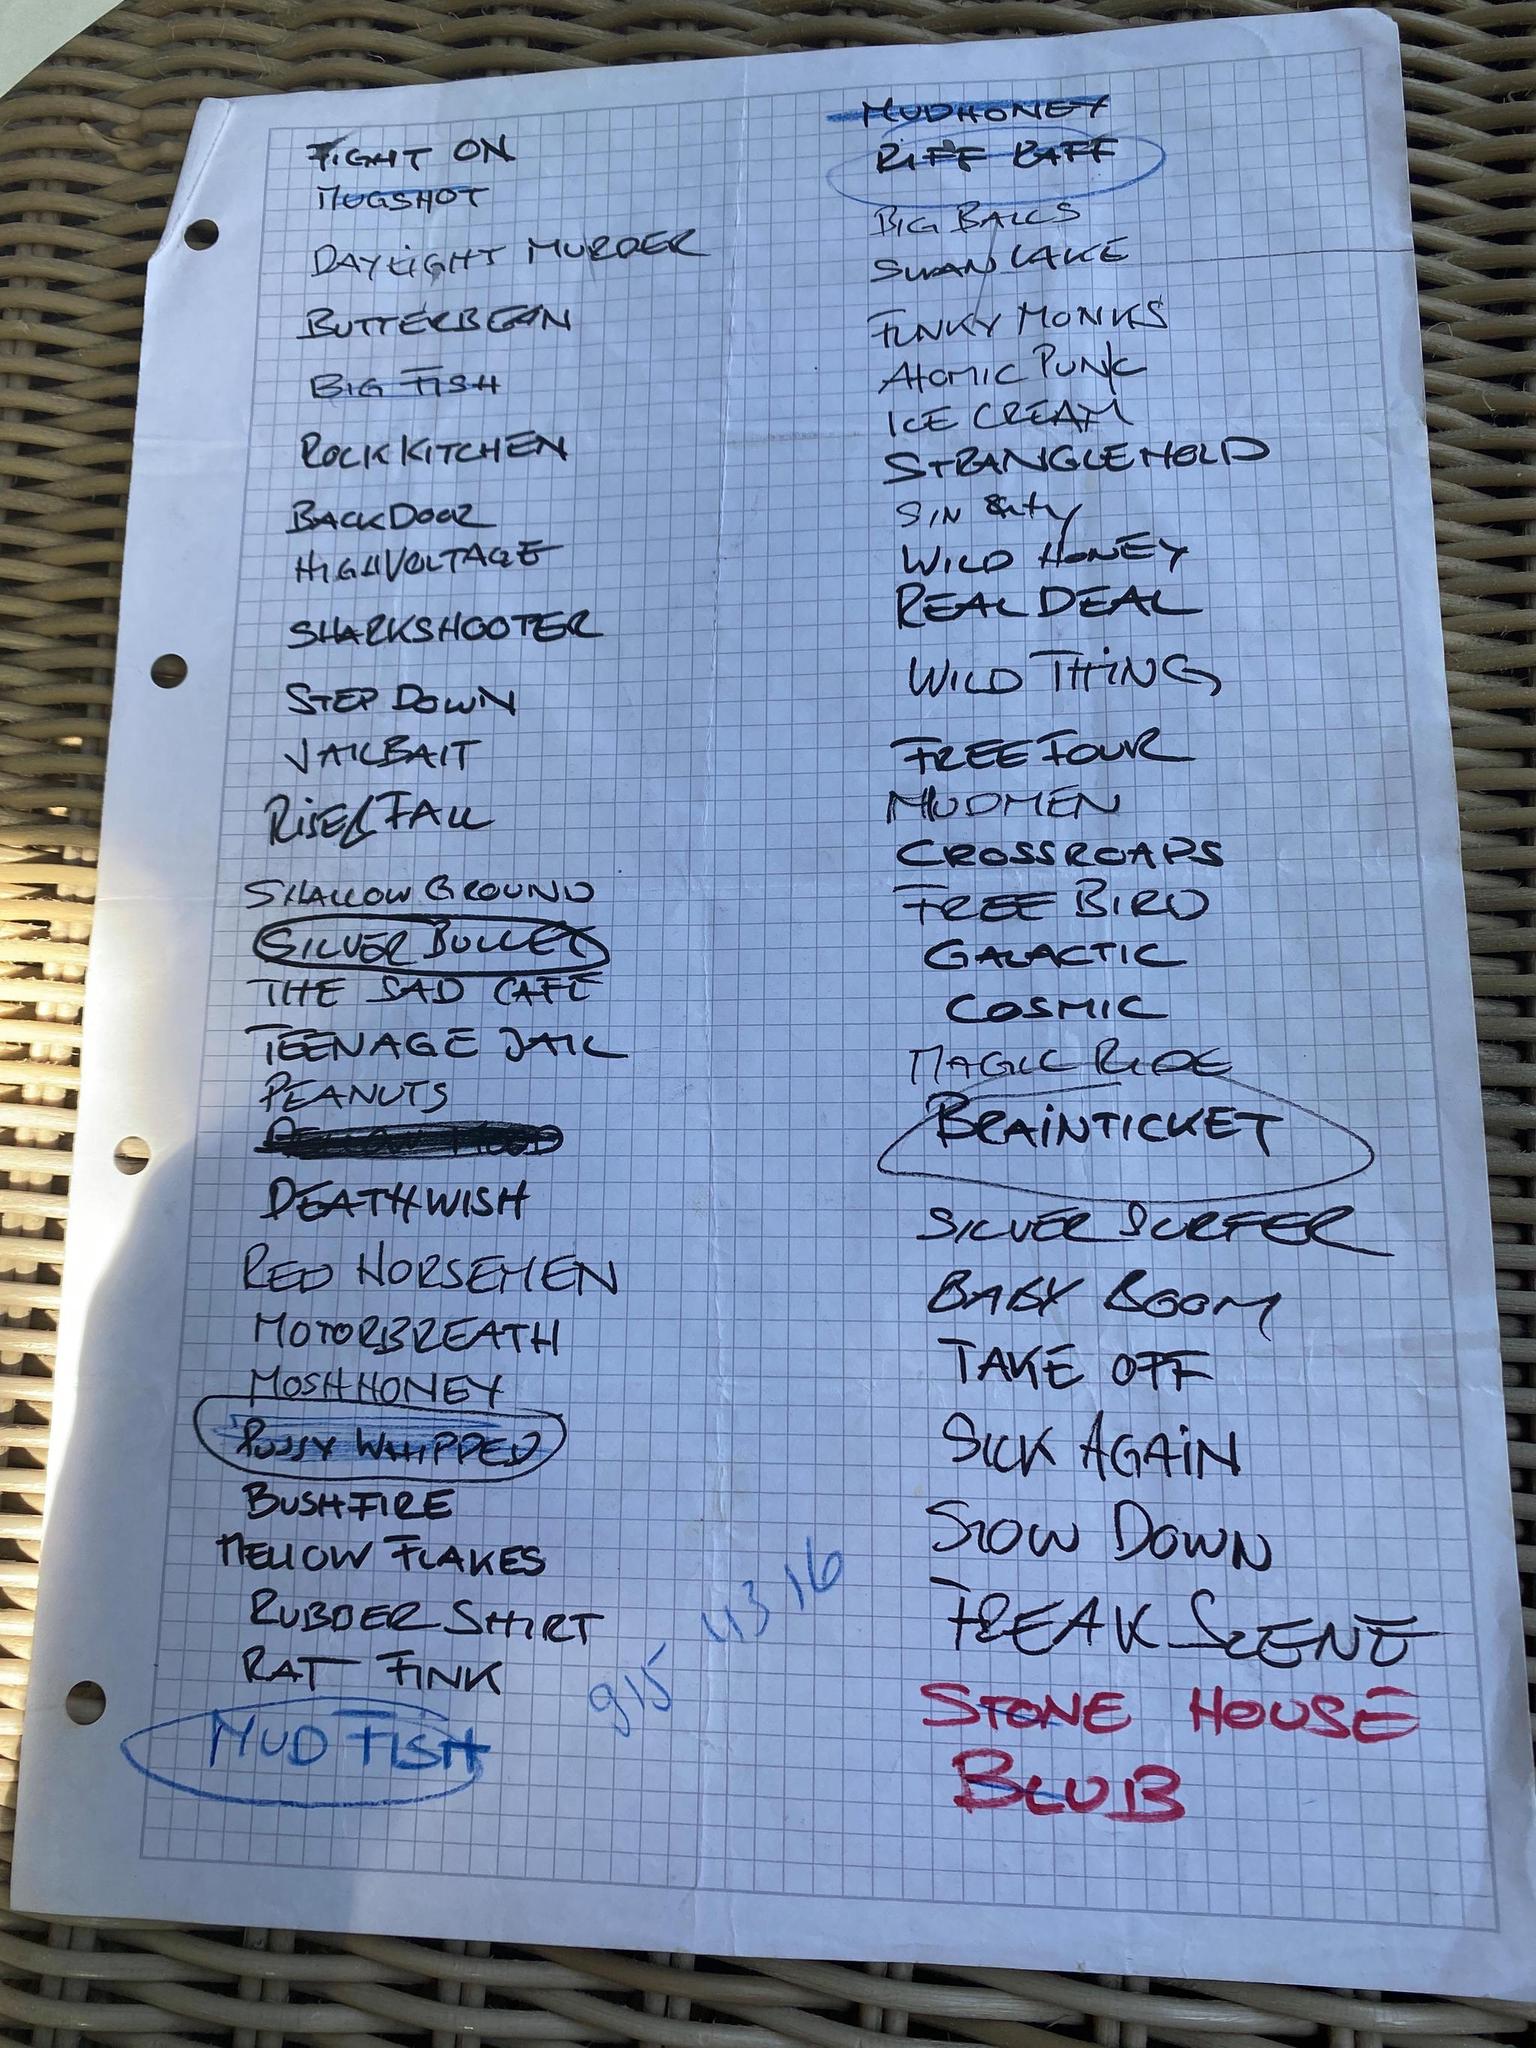 FIGHT ON
MUGSHOT
DAYLIGHT MURDER
BUTTERBEAN
BIG FISH
ROCK KITCHEN
BACK DOOR
HIGH VOLTAGE
SHARKSHOOTER
STEP DOWN
JAILBAIT
RISE & FALL
SHALLOW GROUND
SILVER BULLET
THE SAD CAFE
TEENAGE JAIL
PEANUTS
DEATHWISH
RED HORSEMEN
MOTORBREATH
MOSHHONEY
PUSSY WHIPPED
BUSHFIRE
MELLOW FLAKES
RUBBER SHIRT
RAT FINK
MUD FISH
915 11316
MUDHONEY
RIFF RAFF
BIG BALLS
SWAN LAKE
FUNKY MONKS
ATOMIC PUNK
ICE CREAM
STRANGLEHOLD
SIN City
WILD HONEY
REAL DEAL
WILD THING
FREE FOUR
MUDMEN
CROSSROADS
FREE BIRD
GALACTIC
COSMIC
MAGIC RIDE
BRAINTICKET
SILVER SURFER
BABY BOOM
TAKE OFF
SICK AGAIN
SLOW DOWN
FREAK SCENE
STONE HOUSE
BLUB